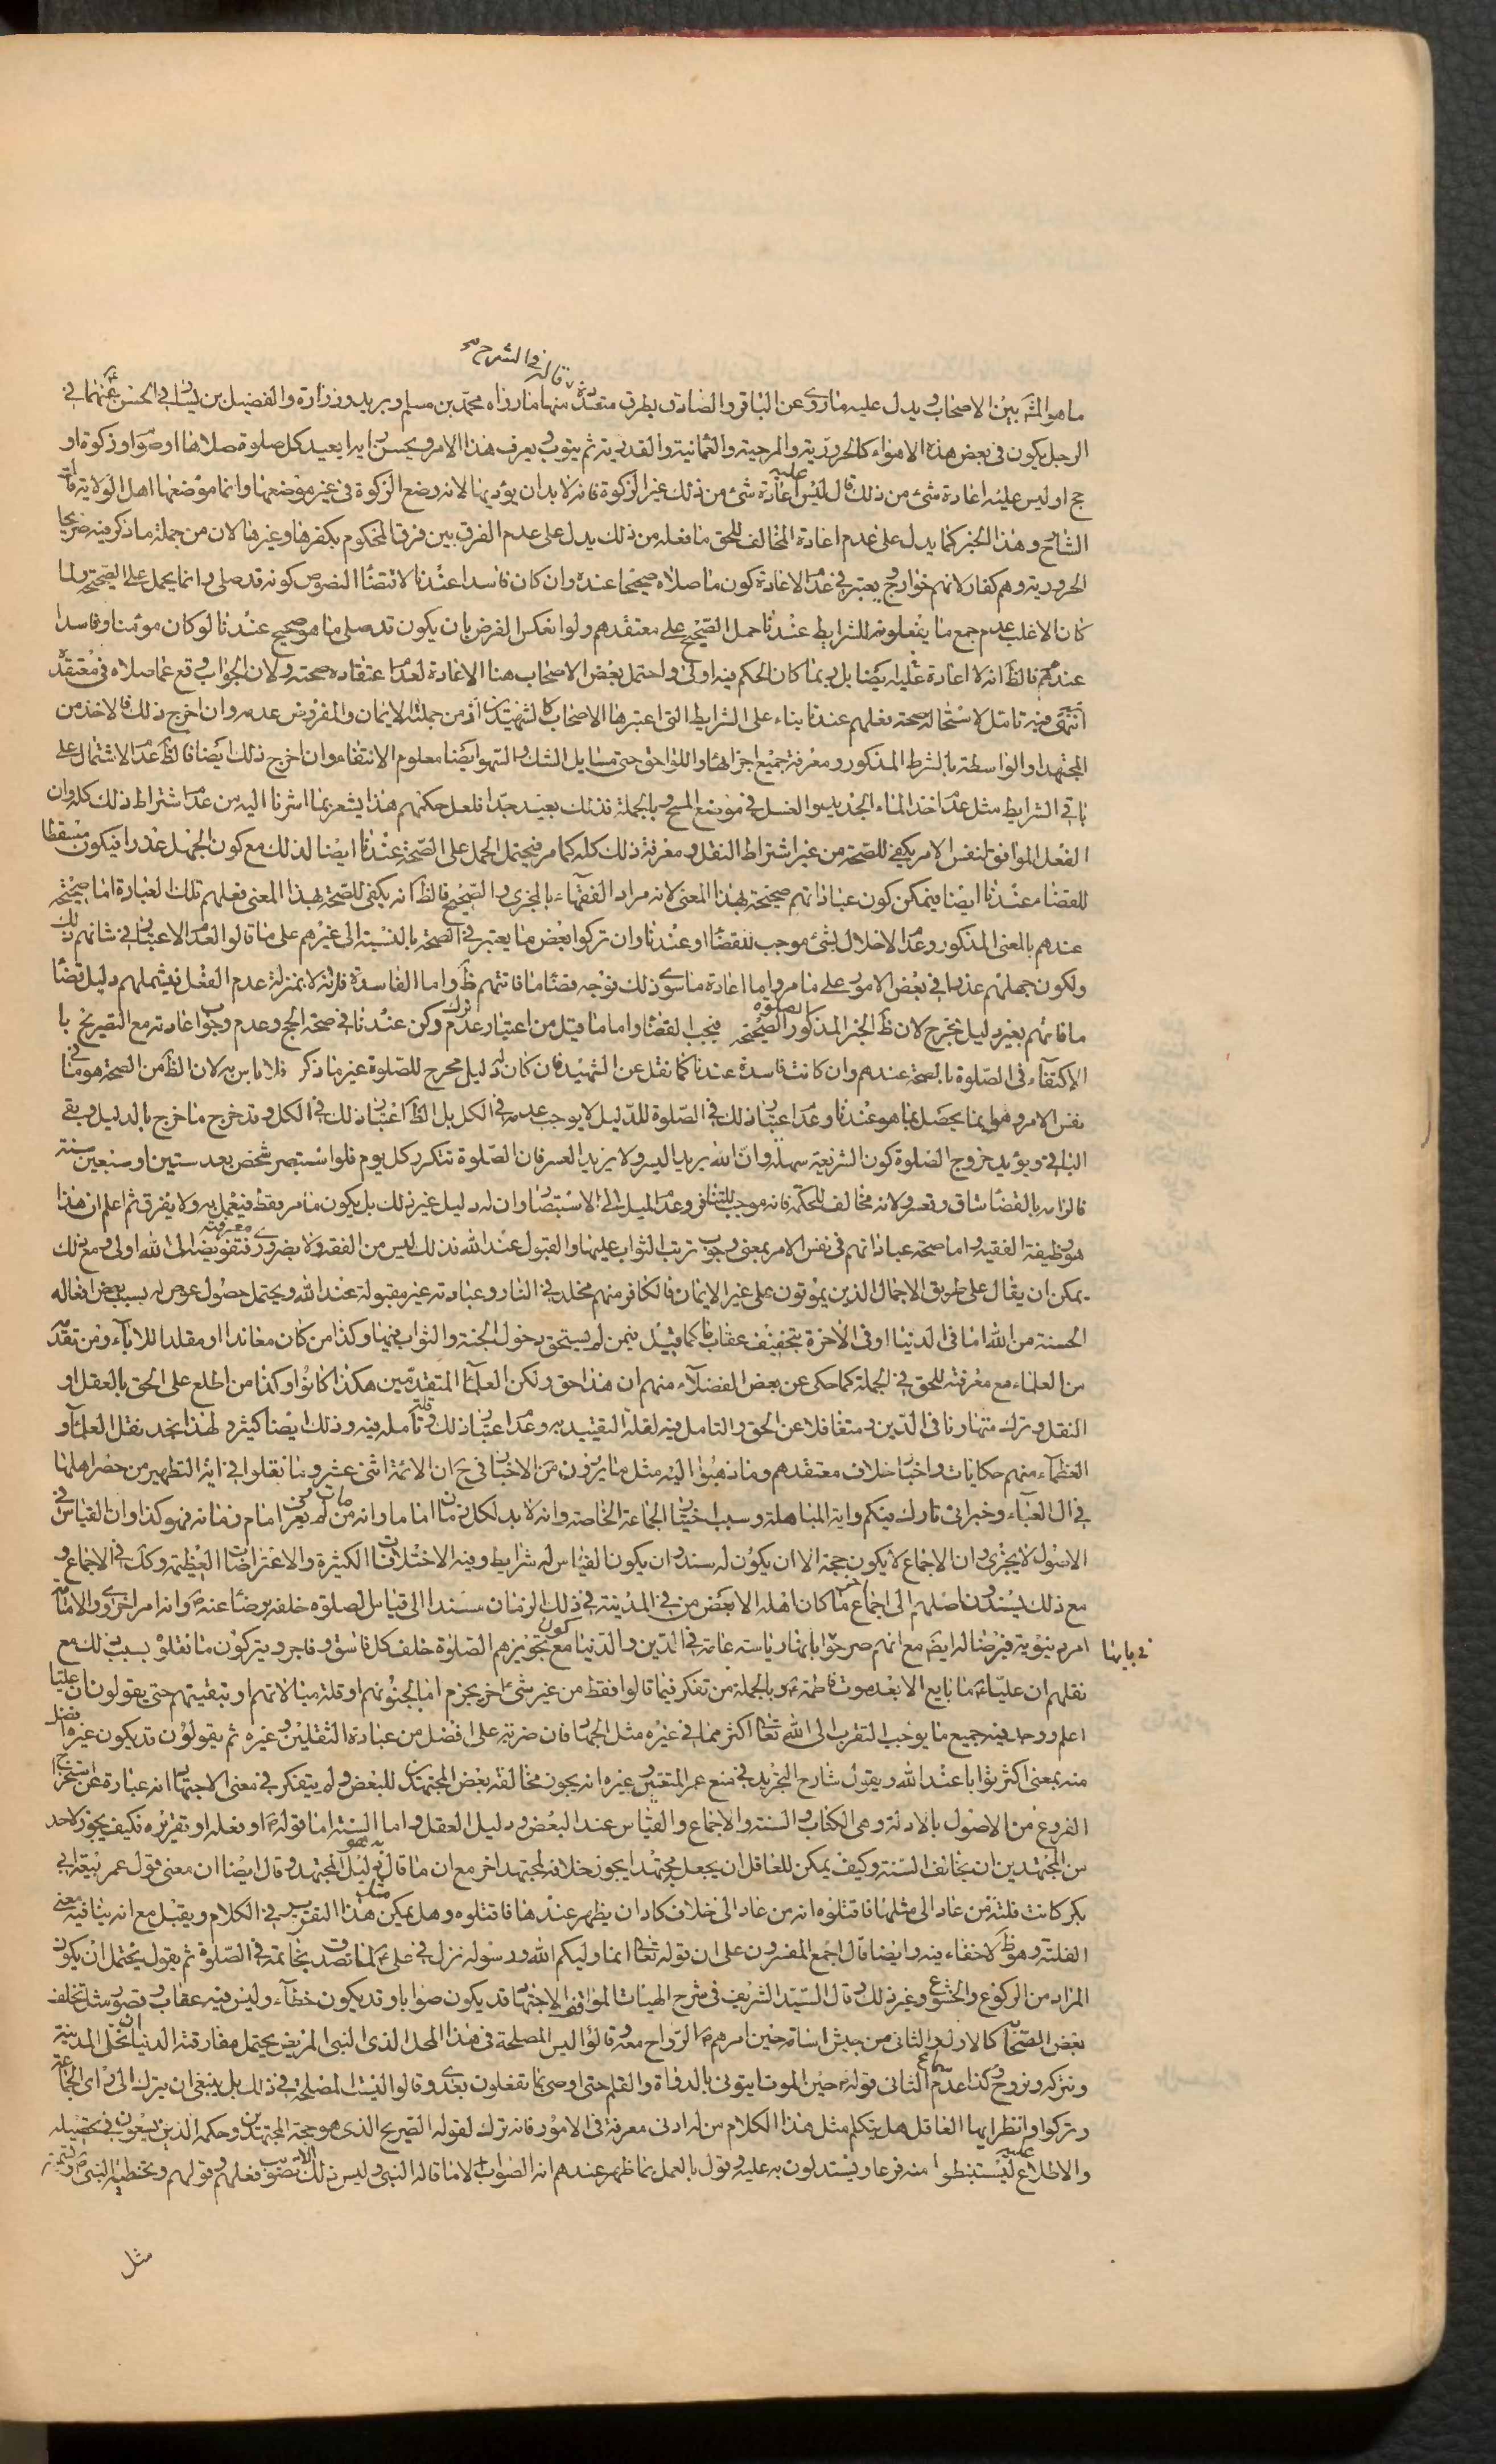 قاله في الشرح
ما هو المشهور بين الاصحاب ويدل عليه ما روى عن الباقر والصادق بطرق متعددة منها ما رواه محمد بن مسلم وبريد وزرارة والفضيل بن يسار في الحسن عنهما في
الرجل يكون في بعض هذه الاهواء كالحرورية والمرجئة والعثمانية والقدرية ثم يتوب ويعرف هذا الامر ويحسن رايه ايعيد كل صلوة صلاها او صوم او زكوة او
حج او ليس عليه اعادة شئ من ذلك قال ليس عليه اعادة شئ من ذلك غير الزكوة فانه لابد ان يؤديها لانه وضع الزكوة في غير موضعها وانما موضعها اهل الولاية قال
الشارح وهذا الخبر كما يدل على عدم اعادة المخالف للحق ما فعله من ذلك يدل على عدم الفرق بين فرق المحكوم بكفرها وغيرها لان من جملة ما ذكر فيه صريحا
الحرورية وهم كفار لانهم خوارج ويعتبر في عدم الاعادة كون ما صلاه صحيحا عنده وان كان فاسدا عندنا لاقتضاء النصوص كونه قد صلى وانما يحمل على الصحة ولما
كان الاغلب عدم جمع ما يفعلونه للشرايط عندنا حمل الصحيح على معتقدهم ولو انعكس الفرض بان يكون قد صلى ما هو صحيح عندنا لو كان مؤمنا وفاسدا
عندهم فالظ انه لا اعادة عليه ايضا بل ربما كان الحكم فيه اولى واحتمل بعض الاصحاب هنا الاعادة لعدم اعتقاده صحته ولان الجواب وقع عما صلاه في معتقده
انتهى وفيه تامل لاستحالة صحة فعلهم عندنا بناء على الشرايط التي اعتبرها الاصحاب كالشهيدين اذ من جملتها الايمان والمفروض عدمه وان اخرج ذلك فالاخذ من
المجتهد او الواسطة بالشرط المذكور ومعرفة جميع اجزائها واللواحق حتى مسايل الشك والسهو ايضا معلوم الانتفاء وان اخرج ذلك ايضا فالظ عدم الاشتمال على
باقي الشرايط مثل عدم اخذ الماء الجديد والغسل في موضع المسح وبالجملة فذلك بعيد جدا فلعل حكمهم هذا يشعر بما اشرنا اليه من عدم اشتراط ذلك كله وان
الفعل الموافق لنفس الامر يكفي للصحة من غير اشتراط النقل ومعرفة ذلك كله كما مر فيحتمل الحمل على الصحة عندنا ايضا لذلك مع كون الجهل عذرا فيكون مسقطا
للقضاء عندنا ايضا فيمكن كون عباداتهم صحيحة بهذا المعنى لانه مراد الفقهاء بالمجزي والصحيح فالظ انه يكفي للصحة بهذا المعنى فعلهم تلك العبادة اما صحيحة
عندهم بالمعنى المذكور وعدم الاخلال بشئ موجب للقضاء او عندنا وان تركوا بعض ما يعتبر في الصحة بالنسبة الى غيرهم على ما قالوا لعدم الاعتبار في شانهم ذلك
ولكون جهلهم عذرا في بعض الامور على ما مر واما اعادة ما سوى ذلك فوجه قضاء ما فاتتهم ظ واما الفاسدة فلانه لا بمنزلة عدم الفعل فيشملهم دليل قضاء
ما فاتهم بغير دليل مخرج لان ظ الخبر المذكور الصلوة الصحيحة فيجب القضاء واما ما قيل من اعتبار عدم ترك ركن عندنا في صحة الحج وعدم وجوب اعادته مع التصريح با
الاكتفاء في الصلوة بالصحة عندهم وان كانت فاسدة عندنا كما نقل عن الشهيد فان كان له دليل مخرج للصلوة غير ما ذكر فلا باس به لان الظ من الصحة هو ما في
نفس الامر وهو انما يحصل بما هو عندنا وعدم اعتبار ذلك في الصلوة للدليل لا يوجب عدمه في الكل بل الظ اعتبار ذلك في الكل وقد خرج ما خرج بالدليل وبقي
الباقي ويؤيد خروج الصلوة كون الشريعة سهلة وان الله يريد اليسر ولا يريد العسر فان الصلوة تتكرر كل يوم فلو استبصر شخص بعد ستين او سبعين سنة
فالزامه بالقضاء شاق وتعسر ولانه مخالف للحكمة فانه موجب للتنافر وعدم الميل الى الاستبصار وان له دليل غير ذلك بل يكون ما مر فقط فيعمل به ولا يفرق ثم اعلم ان هذا
هو وظيفة الفقيه واما صحة عباداتهم في نفس الامر بمعنى وجوب ترتب الثواب عليها والقبول عند الله فذلك ليس من الفقه ولا بضروري معرفته فتفويضه الى الله اولى ومع ذلك
يمكن ان يقال على طريق الاجمال الذين يموتون على غير الايمان فالكافر منهم مخلد في النار وعبادته غير مقبولة عند الله ويحتمل حصول عوض له بسبب بعض افعاله
الحسنة من الله اما في الدنيا او في الآخرة بتخفيف عقاب ما كما قيل فيمن لم يستحق دخول الجنة والثواب فيها وكذا من كان معاندا او مقلدا للاباء ومن تقدم
من العلماء مع معرفته للحق في الجملة كما حكى عن بعض الفضلاء منهم ان هذا حق ولكن العلماء المتقدمين هكذا كانوا وكذا من اطلع على الحق بالعقل او
النقل وترك متهاونا في الدين ومتغافلا عن الحق والتامل فيه لقلة التقييد به وعدم اعتبار ذلك وقلة تأمله فيه وذلك ايضا كثير ولهذا نجد نقل العلماء و
العظماء منهم حكايات واخبارا خلاف معتقدهم وما ذهبوا اليه مثل ما يروون من الاخبار في ح ان الائمة اثنى عشر وما نقلوا في اية التطهير من حصر اهلها
في ال العباء وخبر اني تارك فيكم واية المباهلة وسبب اختيار الجماعة الخاصة وانه لا بد لكل زمان اماما وانه من مات لم يعرف امام زمانه فهو كذا وان القياس في
الاصول لا يجري وان الاجماع لا يكون حجة الا ان يكون له سند وان يكون القياس له شرايط وفيه الاختلافات الكثيرة والاعتراضات العظيمة وكذلك في الاجماع و
مع ذلك يسندون اصلهم الى اجماع ما كان اهله الا بعض من في المدينة في ذلك الزمان سندا الى قياس الصلوة خلفه برضاء عنه وانه امر اخروي والامامة
امر دنيوية فرضا له ايضا مع انهم صرحوا بانها رياسة عامة في الدين والدنيا مع كون تجويزهم الصلوة خلف كل فاسق وفاجر ويتركون ما نقلوه بسبب ذلك مع
في بابها
نقلهم ان عليا ما بايع الا بعد موت فاطمة وبالجملة من تفكر فيما قالوا فقط من غير شئ اخر يجزم اما بجنونهم او قلة مبالاتهم او بتقيتهم حتى يقولون ان عليا
اعلم ووجد فيه جميع ما يوجب التقرب الى الله تعالى اكثر مما في غيره مثل الجهاد فان ضربة على افضل من عبادة الثقلين وغيره ثم يقولون قد يكون غيره افضل
منه بمعنى اكثر ثوابا عند الله ويقول شارح التجريد في منع عمر المتعتين وغيره انه يجوز مخالفة بعض المجتهدين للبعض ولم يتفكر في معنى الاجتهاد انه عبارة عن استخراج
الفروع من الاصول بالادلة وهي الكتاب والسنة والاجماع والقياس عند البعض ودليل العقل واما السنة اما قوله او فعله او تقريره فكيف يجوز لاحد
من المجتهدين ان يخالف السنة وكيف يمكن للعاقل ان يجعل مجتهدا يجوز خلافه لمجتهد اخر مع ان ما قاله هو دليل المجتهد وقال ايضا ان معنى قول عمر بيعة ابي
بكر كانت فلتة فمن عاد الى مثلها فاقتلوه انه من عاد الى خلاف كاد ان يظهر عندها فاقتلوه وهل يمكن مثل هذا التقريب في الكلام ويقبل مع انه ينافيه معنى
الفلتة وهو ظ لاخفاء فيه وايضا قال اجمع المفسرون على ان قوله تعالى انما وليكم الله ورسوله نزل في على لما تصدق بخاتمه في الصلوة ثم يقول يحتمل ان يكون
المراد من الركوع والخشوع وغير ذلك وقال السيد الشريف في شرح الهيات المواقف الاجتهاد قد يكون صوابا وقد يكون خطآء وليس فيه عقاب وقصور مثل تخلف
بعض الصحابة كالاول والثاني من جيش اسامة حين امرهم بالرواح معه وقالوا ليس المصلحة في هذا المحل الذي النبي المريض يحتمل مفارقته الدنيا ان نخلى المدينة
ونتركه ونروح وكذا عدم سماع الثاني قوله حين الموت ايتوني بالدواة والقلم حتى اوصى بما تفعلون بعدي وقالوا ليست المصلحة في ذلك بل ينبغي ان يترك الى راى الجماعة
وتركوا وانظر ايها العاقل هل يتكلم مثل هذا الكلام من له ادنى معرفة في الامور فانه ترك لقوله الصريح الذي هو حجة المجتهدين وحكمه الذين يسعون في تحصيله
والاطلاع عليه ليستنبطوا منه فرعا ويستدلون به عليه وقول بالعمل بما ظهر عندهم انه الصواب لا ما قاله النبي وليس ذلك الا تصويب فعلهم وقولهم وتخطئة النبي
مثل